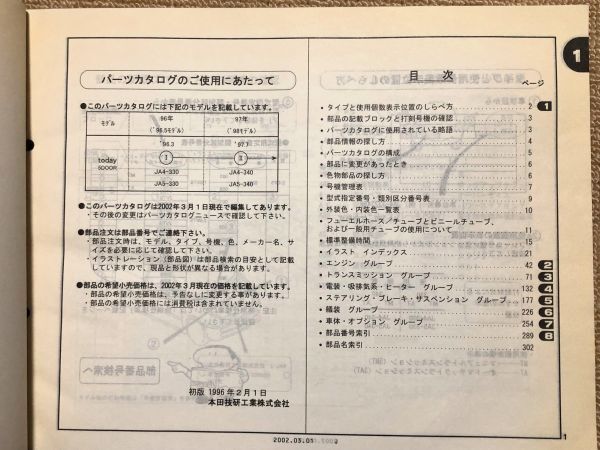 パーツカタログのご使用にあたって
●このパーツカタログには下記のモデルを記載しています。
モデル 96年 97年
('96.5モデル) ('98モデル)
'96.3 '97.7
today Ⅰ Ⅱ
600DR
JA4-330 JA4-340
JA5-330 JA5-340
●このパーツカタログは2002年3月1日現在で編集してあります。
・その後の変更はパーツカタログニュースで確認して下さい。
●部品注文は部品番号でご連絡下さい。
・部品注文時は、モデル、タイプ、号機、色、メーカー名、サ
イズを必要に応じて確認して下さい。
・イラストレーション(部品図)は部品検索の目安として記載し
ていますので、現品と形状が異なる場合があります。
●部品の希望小売価格は、2002年3月現在の価格を記載しています。
・部品の希望小売価格は、予告なしに変更する事があります。
・部品の希望小売価格には消費税は含まれていません。
初版 1996年2月1日
本田技研工業株式会社
目 次
ページ
・タイプと使用個数表示位置のしらべ方 2 1
・部品の記載ブロックと打刻号機の確認 3
・パーツカタログに使用されている略語 3
・部品情報の探し方 4
・パーツカタログの構成 5
・部品に変更があったとき 6
・色物部品の探し方 6
・号機管理表 7
・型式指定番号・類別区分番号表 9
・外装色・内装色一覧表 10
・フューエルホース/チューブとビニールチューブ、
および一般用チューブの使用について 11
・標準整備時間 15
・イラスト インデックス 21
・エンジン グループ 42 2
・トランスミッション グループ 71 3
・電装・吸排気系・ヒーター グループ 132 4
・ステアリング・ブレーキ・サスペンション グループ 177 5
・艤装 グループ 226 6
・車体・オプション グループ 254 7
・部品番号索引 289 8
・部品名索引 302
1
2002.03.01
1